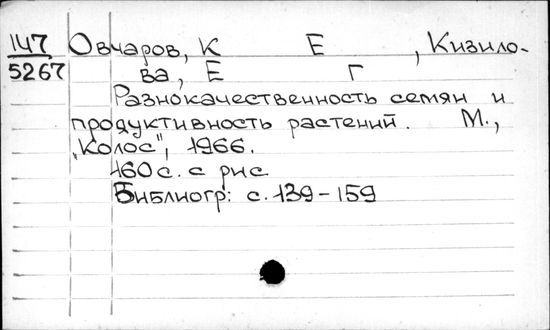 147 Овчаров, К Е , Кизило-
5267 ва, Е Г
Разнокачественность семян и
продуктивность растений. М.,
„Колос", 1966.
160 с. с рис
Библиогр: с. 139-159